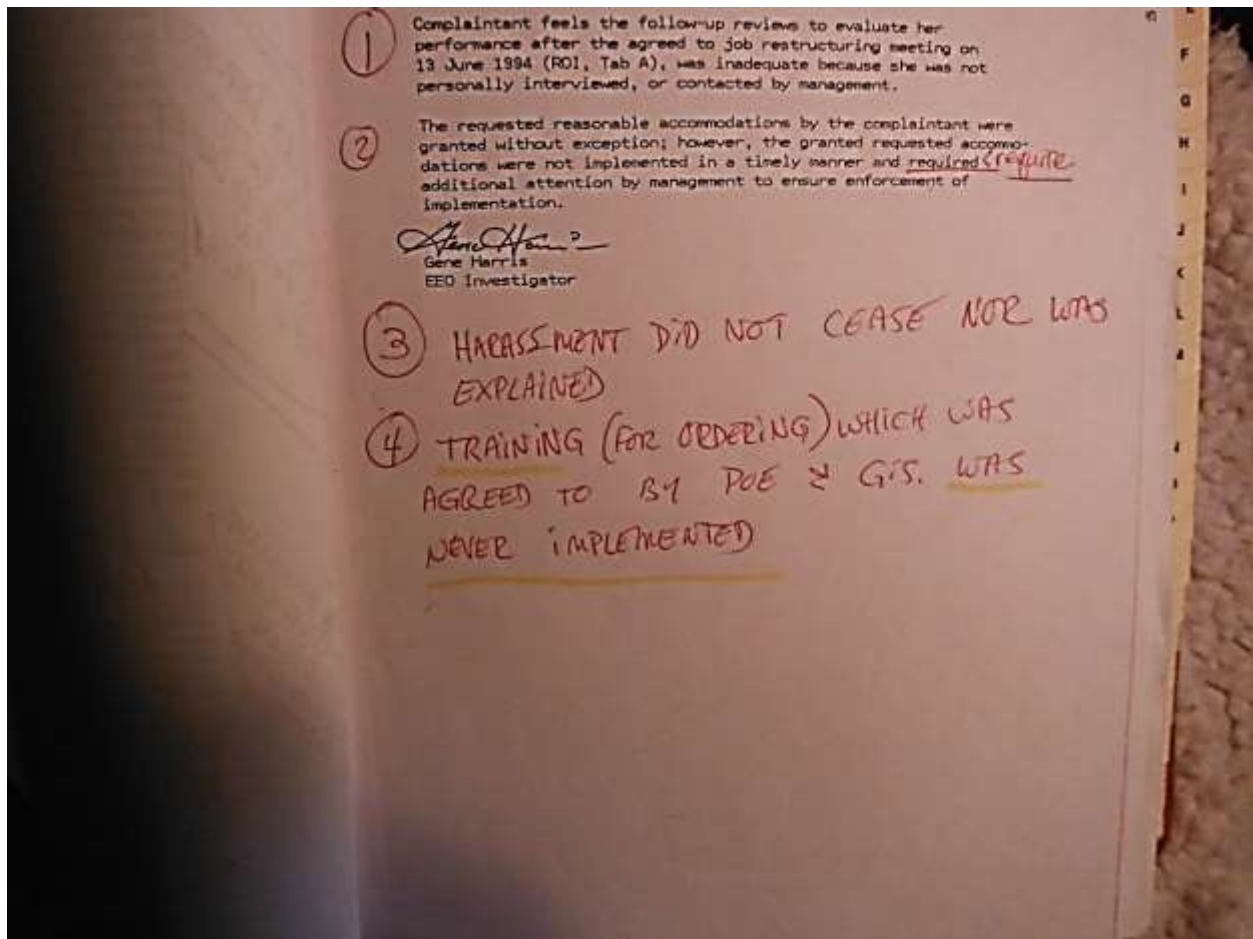 ① Complaintant feels the follow-up reviews to evaluate her
performance after the agreed to job restructuring meeting on
13 June 1994 (ROI, Tab A), was inadequate because she was not
personally interviewed, or contacted by management.
② The requested reasonable accommodations by the complaintant were
granted without exception; however, the granted requested accommo-
dations were not implemented in a timely manner and required (require
additional attention by management to ensure enforcement of
implementation.
Gene Harris
EEO Investigator
③ HARASSMENT DID NOT CEASE NOR WAS
EXPLAINED
④ TRAINING (FOR ORDERING) WHICH WAS
AGREED TO BY POE & GIS. WAS
NEVER IMPLEMENTED
F
G
H
I
J
K
L